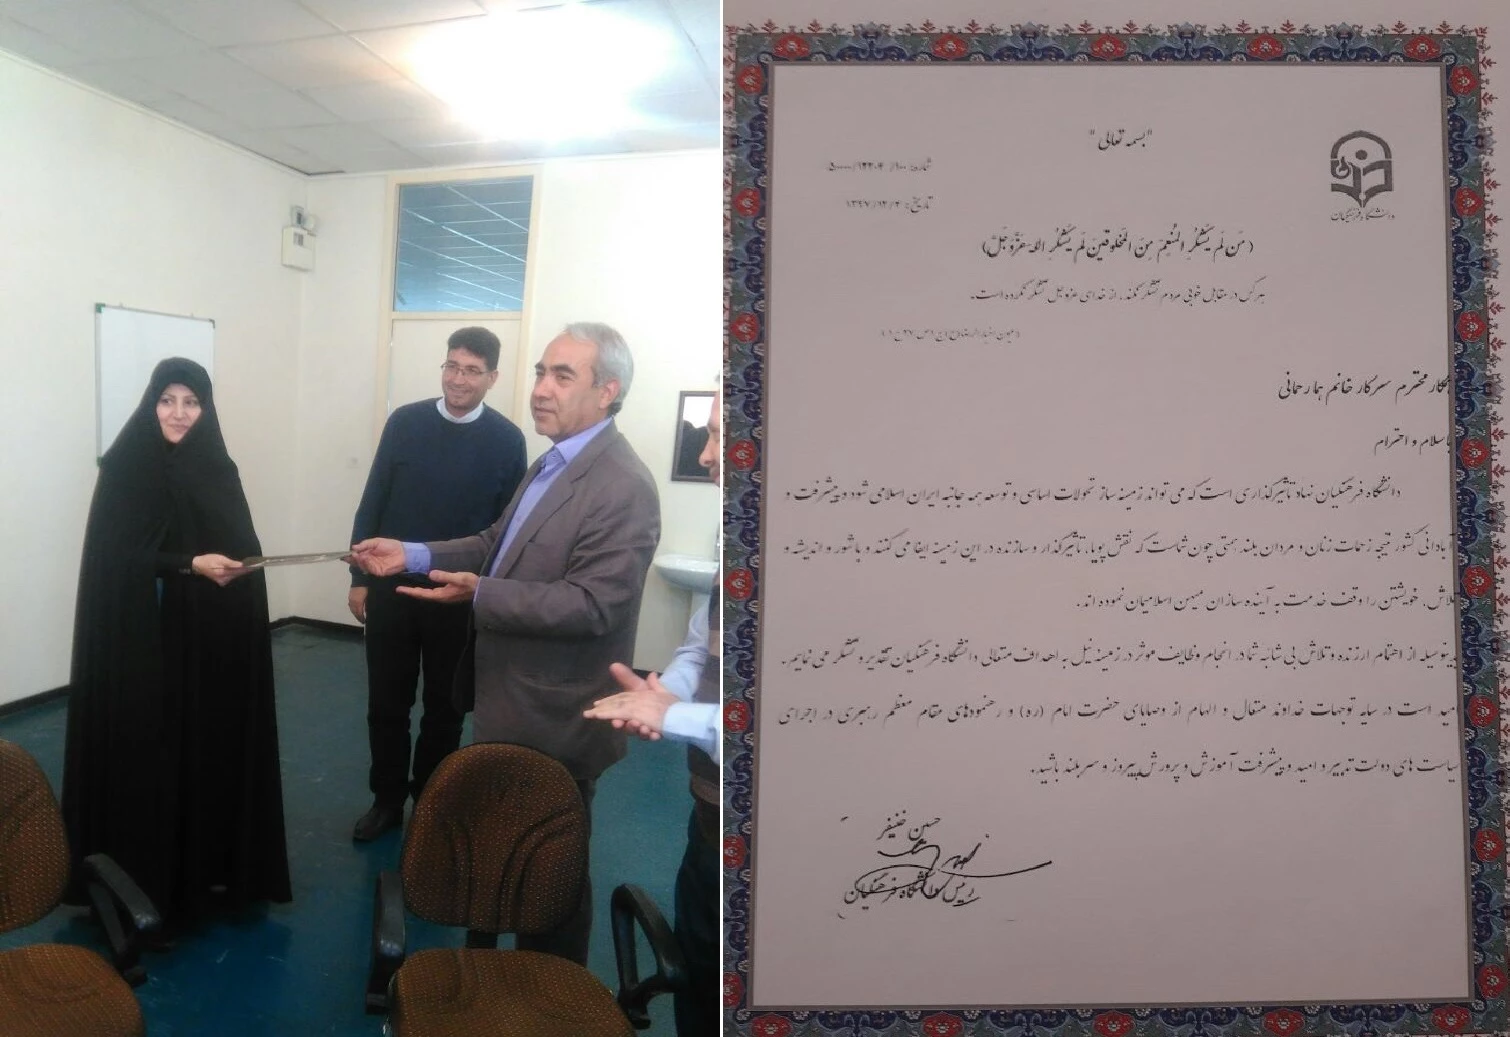 "بسمه تعالی"
شماره: ۵۰۰۰۰/۱۲۲۰۴/۱۰۰
تاریخ: ۱۳۹۷/۱۲/۴
دانشگاه فرهنگیان
(مَن لَم یَشکُرِ المُنعِمَ مِنَ المَخلوقینَ لَم یَشکُرِ اللهَ عَزَّوَجَلَّ)
هر کس در مقابل خوبی مردم تشکر نکند، از خدای عزوجل تشکر نکرده است.
(عیون اخبار الرضا (ع) ج۲، ص
همکار محترم سرکار خانم هما رحمانی
با سلام و احترام
دانشگاه فرهنگیان نهاد تاثیرگذاری است که می تواند زمینه ساز تحولات اساسی و توسعه همه جانبه ایران اسلامی شود و پیشرفت و
آبادانی کشور نتیجه زحمات زنان و مردان بلند همتی چون شماست که نقش پویا، تاثیرگذار و سازنده در این زمینه ایفا می کنند و با شور و اندیشه و
تلاش، خویشتن را وقف خدمت به آینده سازان میهن اسلامیمان نموده اند.
بدینوسیله از اهتمام ارزنده و تلاش بی شائبه شما در انجام وظایف موثر در زمینه نیل به اهداف متعالی دانشگاه فرهنگیان تقدیر و تشکر می نمایم.
امید است در سایه توجهات خداوند متعال و الهام از وصایای حضرت امام (ره) و رهنمودهای مقام معظم رهبری در اجرای
سیاست های دولت تدبیر و امید و پیشرفت آموزش و پرورش پیروز و سربلند باشید.
حسین خنیفر
رئیس دانشگاه فرهنگیان